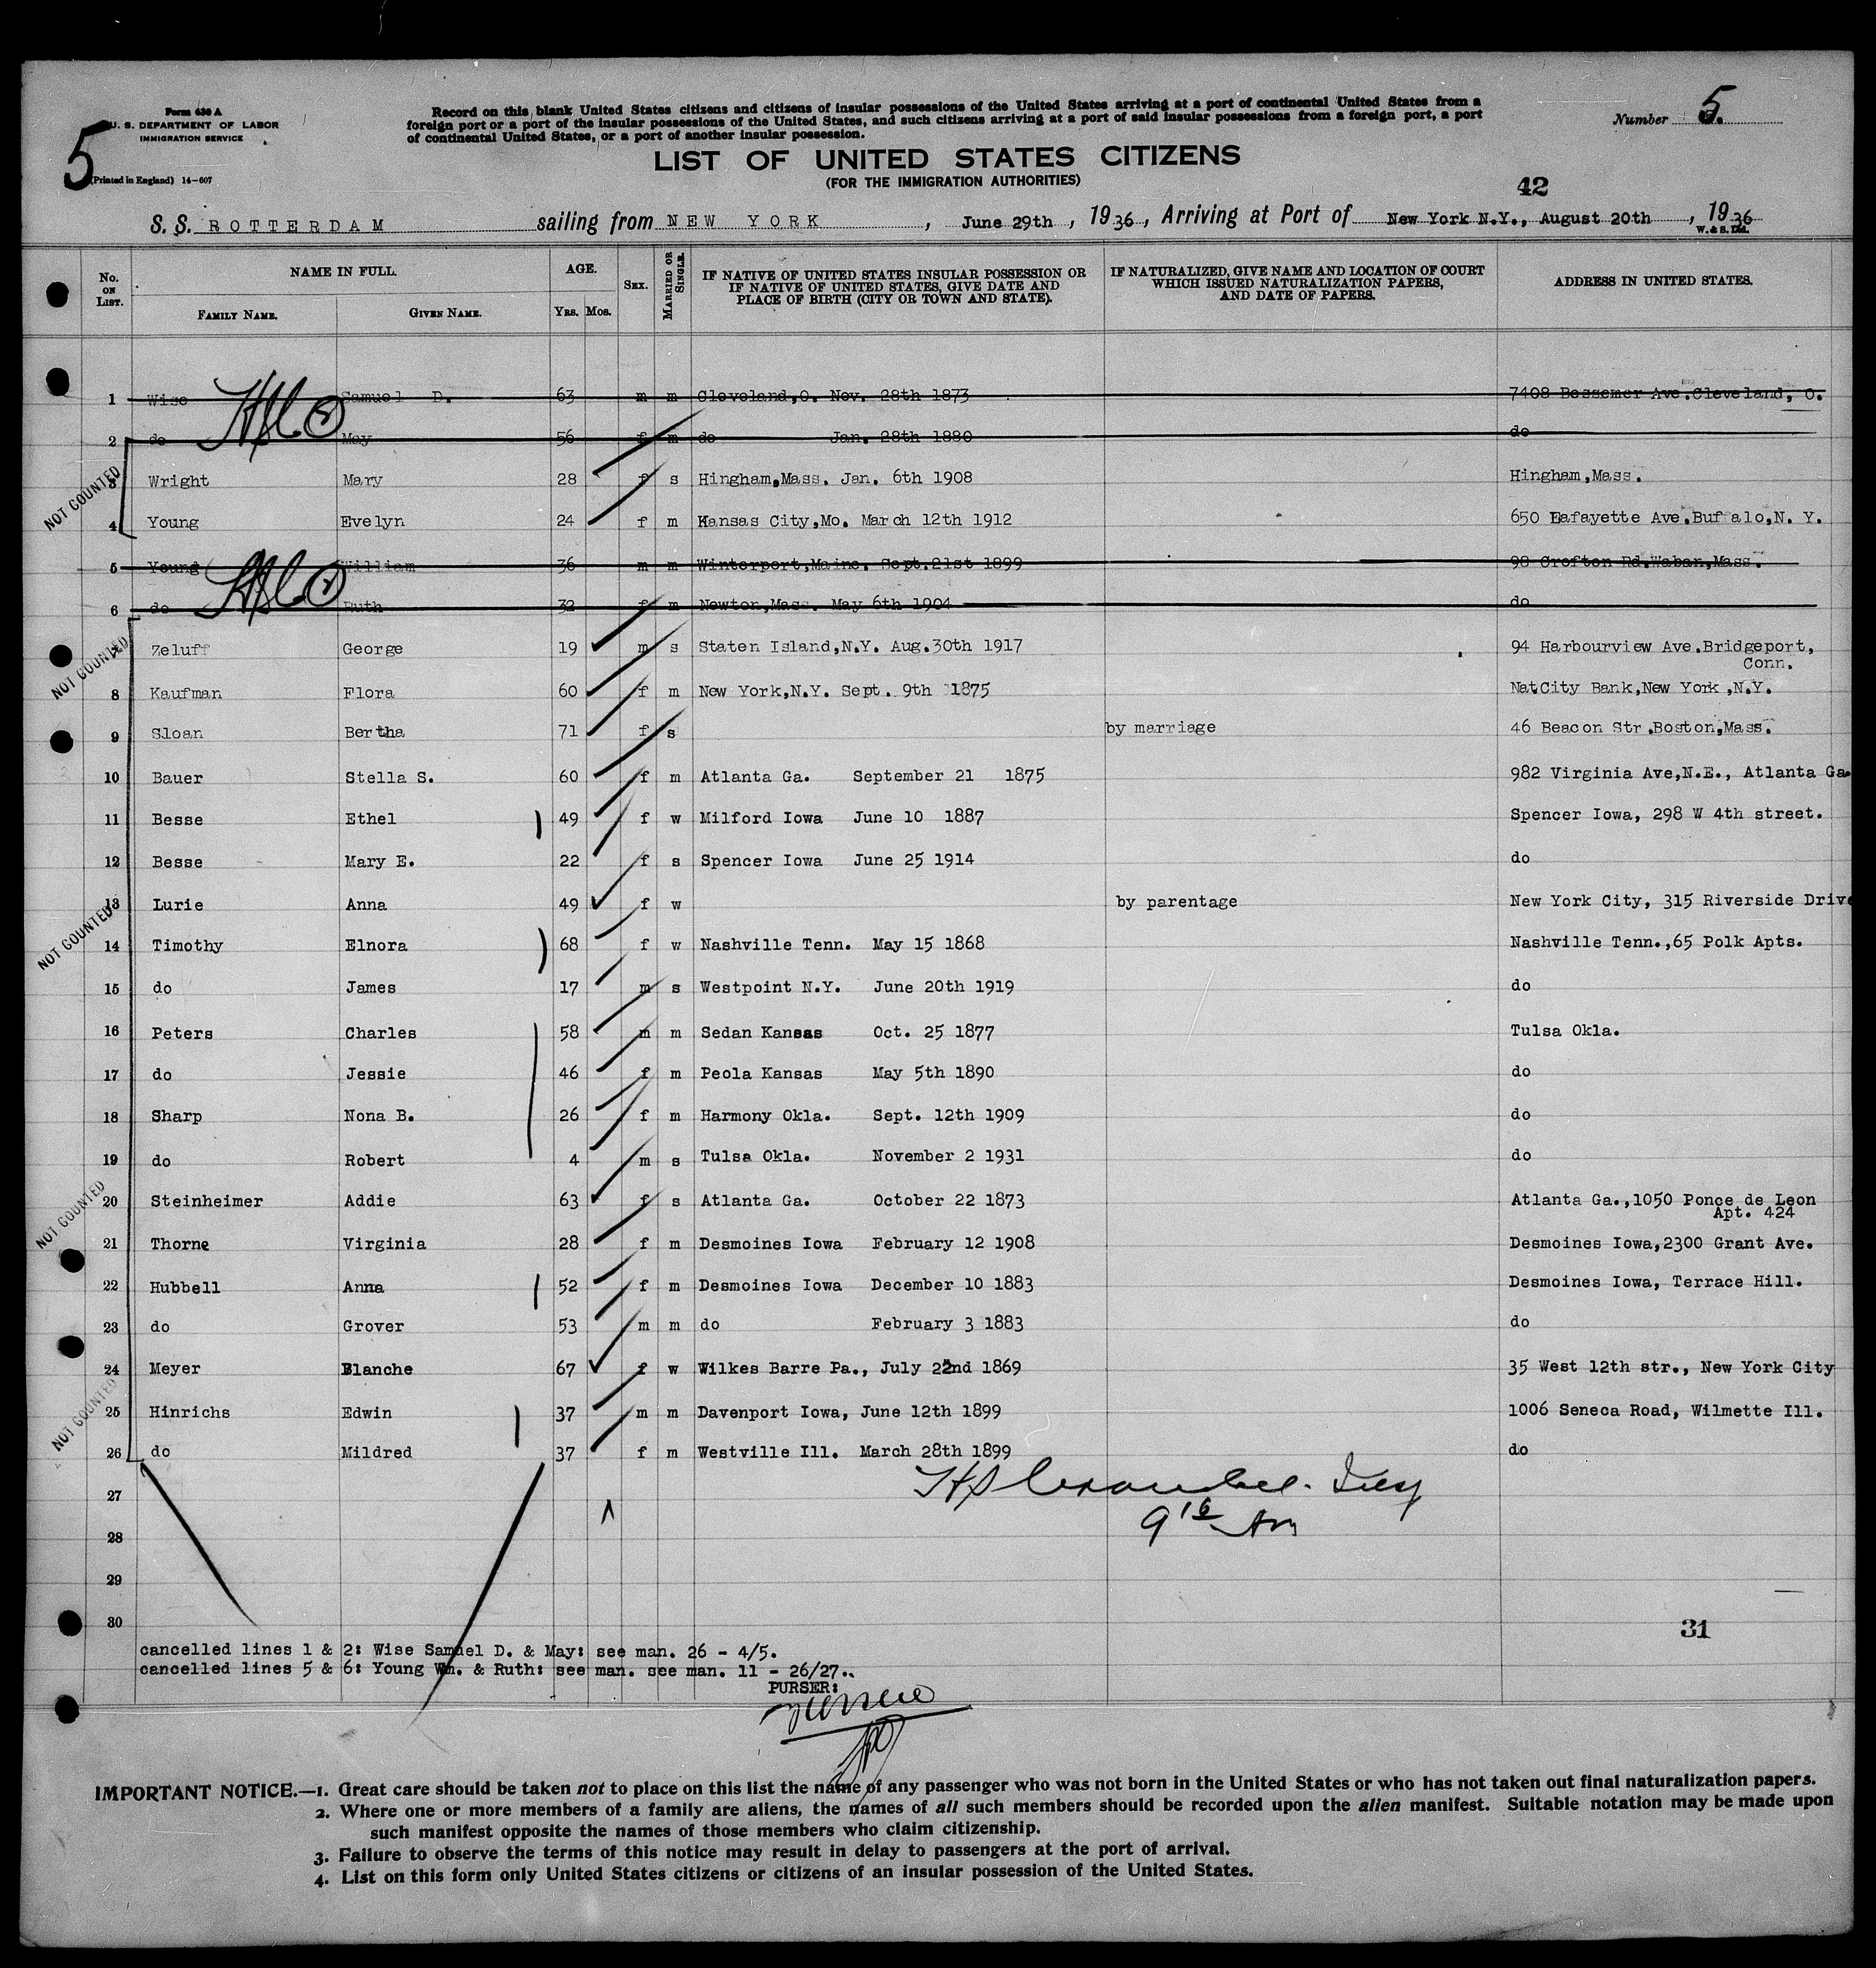 Form 630 A
U. S. DEPARTMENT OF LABOR
IMMIGRATION SERVICE
(Printed in England) 14-607
5
Record on this blank United States citizens and citizens of insular possessions of the United States arriving at a port of continental United States from a
foreign port or a port of the insular possessions of the United States, and such citizens arriving at a port of said insular possessions from a foreign port, a port
of continental United States, or a port of another insular possession.
Number 5.
LIST OF UNITED STATES CITIZENS
(FOR THE IMMIGRATION AUTHORITIES)
42
S.S. ROTTERDAM sailing from NEW YORK, June 29th, 1936, Arriving at Port of New York N.Y., August 20th, 1936
W. & S. Ltd.
No. ON LIST. NAME IN FULL. AGE. SEX. MARRIED OR SINGLE. IF NATIVE OF UNITED STATES INSULAR POSSESSION OR IF NATIVE OF UNITED STATES, GIVE DATE AND PLACE OF BIRTH (CITY OR TOWN AND STATE). IF NATURALIZED, GIVE NAME AND LOCATION OF COURT WHICH ISSUED NATURALIZATION PAPERS, AND DATE OF PAPERS. ADDRESS IN UNITED STATES.
FAMILY NAME. GIVEN NAME. YRS. MOS.
1 Wise Samuel D. 63 m m Cleveland,O. Nov. 28th 1873 7408 Bessemer Ave.Cleveland, O.
2 do May 56 f m do Jan. 28th 1880 do
NOT COUNTED
3 Wright Mary 28 f s Hingham,Mass. Jan. 6th 1908 Hingham,Mass.
4 Young Evelyn 24 f m Kansas City,Mo. March 12th 1912 650 Lafayette Ave.Buffalo,N. Y.
5 Young William 36 m m Winterport,Maine. Sept.21st 1899 98 Crofton Rd.Waban,Mass.
6 do Ruth 32 f m Newton,Mass. May 6th 1904 do
NOT COUNTED
7 Zeluff George 19 m s Staten Island,N.Y. Aug.30th 1917 94 Harbourview Ave.Bridgeport,
Conn.
8 Kaufman Flora 60 f m New York,N.Y. Sept. 9th 1875 Nat.City Bank,New York,N.Y.
9 Sloan Bertha 71 f s by marriage 46 Beacon Str.Boston,Mass.
10 Bauer Stella S. 60 f m Atlanta Ga. September 21 1875 982 Virginia Ave,N.E., Atlanta Ga.
11 Besse Ethel 49 f w Milford Iowa June 10 1887 Spencer Iowa, 298 W 4th street.
12 Besse Mary E. 22 f s Spencer Iowa June 25 1914 do
13 Lurie Anna 49 f w by parentage New York City, 315 Riverside Drive
NOT COUNTED
14 Timothy Elnora 68 f w Nashville Tenn. May 15 1868 Nashville Tenn.,65 Polk Apts.
15 do James 17 m s Westpoint N.Y. June 20th 1919 do
16 Peters Charles 58 m m Sedan Kansas Oct. 25 1877 Tulsa Okla.
17 do Jessie 46 f m Peola Kansas May 5th 1890 do
18 Sharp Nona B. 26 f m Harmony Okla. Sept. 12th 1909 do
19 do Robert 4 m s Tulsa Okla. November 2 1931 do
NOT COUNTED
20 Steinheimer Addie 63 f s Atlanta Ga. October 22 1873 Atlanta Ga.,1050 Ponce de Leon
Apt. 424
21 Thorne Virginia 28 f m Desmoines Iowa February 12 1908 Desmoines Iowa,2300 Grant Ave.
22 Hubbell Anna 52 f m Desmoines Iowa December 10 1883 Desmoines Iowa, Terrace Hill.
23 do Grover 53 m m do February 3 1883 do
24 Meyer Blanche 67 f w Wilkes Barre Pa., July 22nd 1869 35 West 12th str., New York City
NOT COUNTED
25 Hinrichs Edwin 37 m m Davenport Iowa, June 12th 1899 1006 Seneca Road, Wilmette Ill.
26 do Mildred 37 f m Westville Ill. March 28th 1899 do
27
28
29
30
31
cancelled lines 1 & 2: Wise Samuel D. & May: see man. 26 - 4/5.
cancelled lines 5 & 6: Young Wm. & Ruth: see man. see man. 11 - 26/27..
PURSER:
IMPORTANT NOTICE.—1. Great care should be taken not to place on this list the name of any passenger who was not born in the United States or who has not taken out final naturalization papers.
2. Where one or more members of a family are aliens, the names of all such members should be recorded upon the alien manifest. Suitable notation may be made upon
such manifest opposite the names of those members who claim citizenship.
3. Failure to observe the terms of this notice may result in delay to passengers at the port of arrival.
4. List on this form only United States citizens or citizens of an insular possession of the United States.